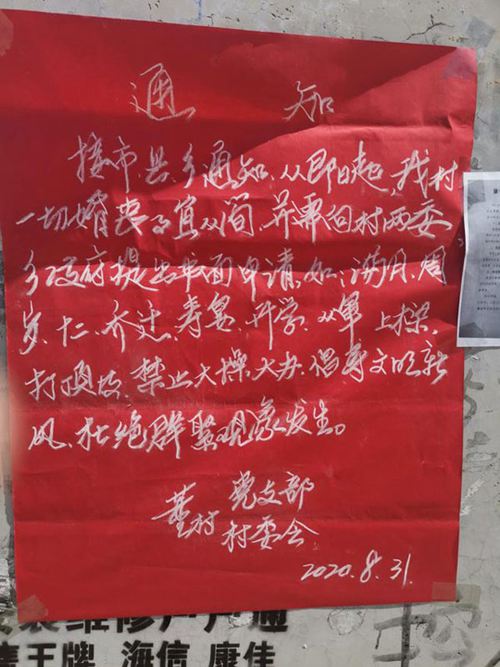 通知
接市.县.乡通知.从即日起.我村
一切婚丧事宜从简.并要向村两委
乡政府提出书面申请.如:满月.周
岁.十二.乔迁.寿宴.升学.从军.上梁.
打顶板.禁止大操.大办.倡导文明新
风.杜绝群聚现象发生。
党支部
董村
村委会
2020.8.31.
王牌 海信 康佳